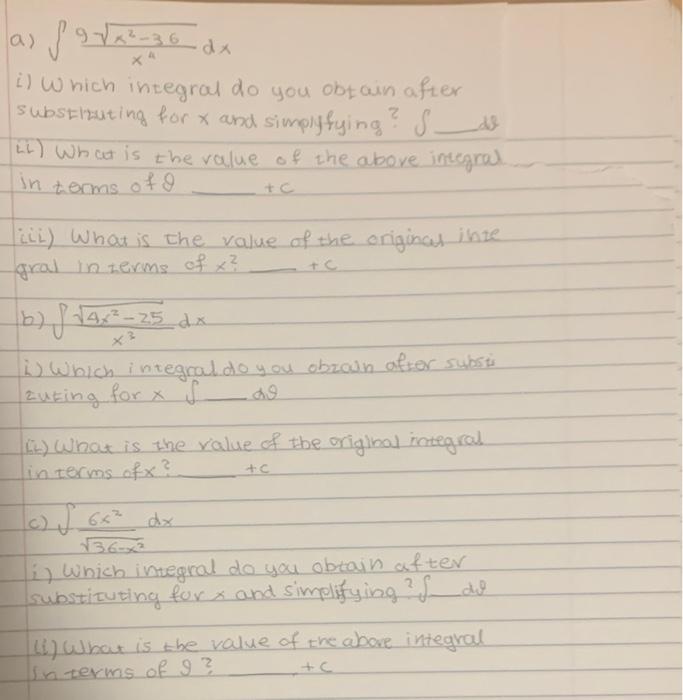 a) ∫ 9√x²-36 / x⁴ dx
i) Which integral do you obtain after
substituting for x and simplyfying? ∫ __ dθ
ii) What is the value of the above integral
in terms of θ ____ +c
iii) What is the value of the original inte
gral in terms of x? ___ +c
b) ∫ √4x²-25 / x³ dx
i) Which integral do you obtain after substi
tuting for x ∫ ___ dθ
ii) What is the value of the original integral
in terms of x? ____ +c
c) ∫ 6x² / √36-x² dx
i) Which integral do you obtain after
substituting for x and simplifying? ∫ __ dθ
ii) What is the value of the above integral
in terms of θ? ____ +c